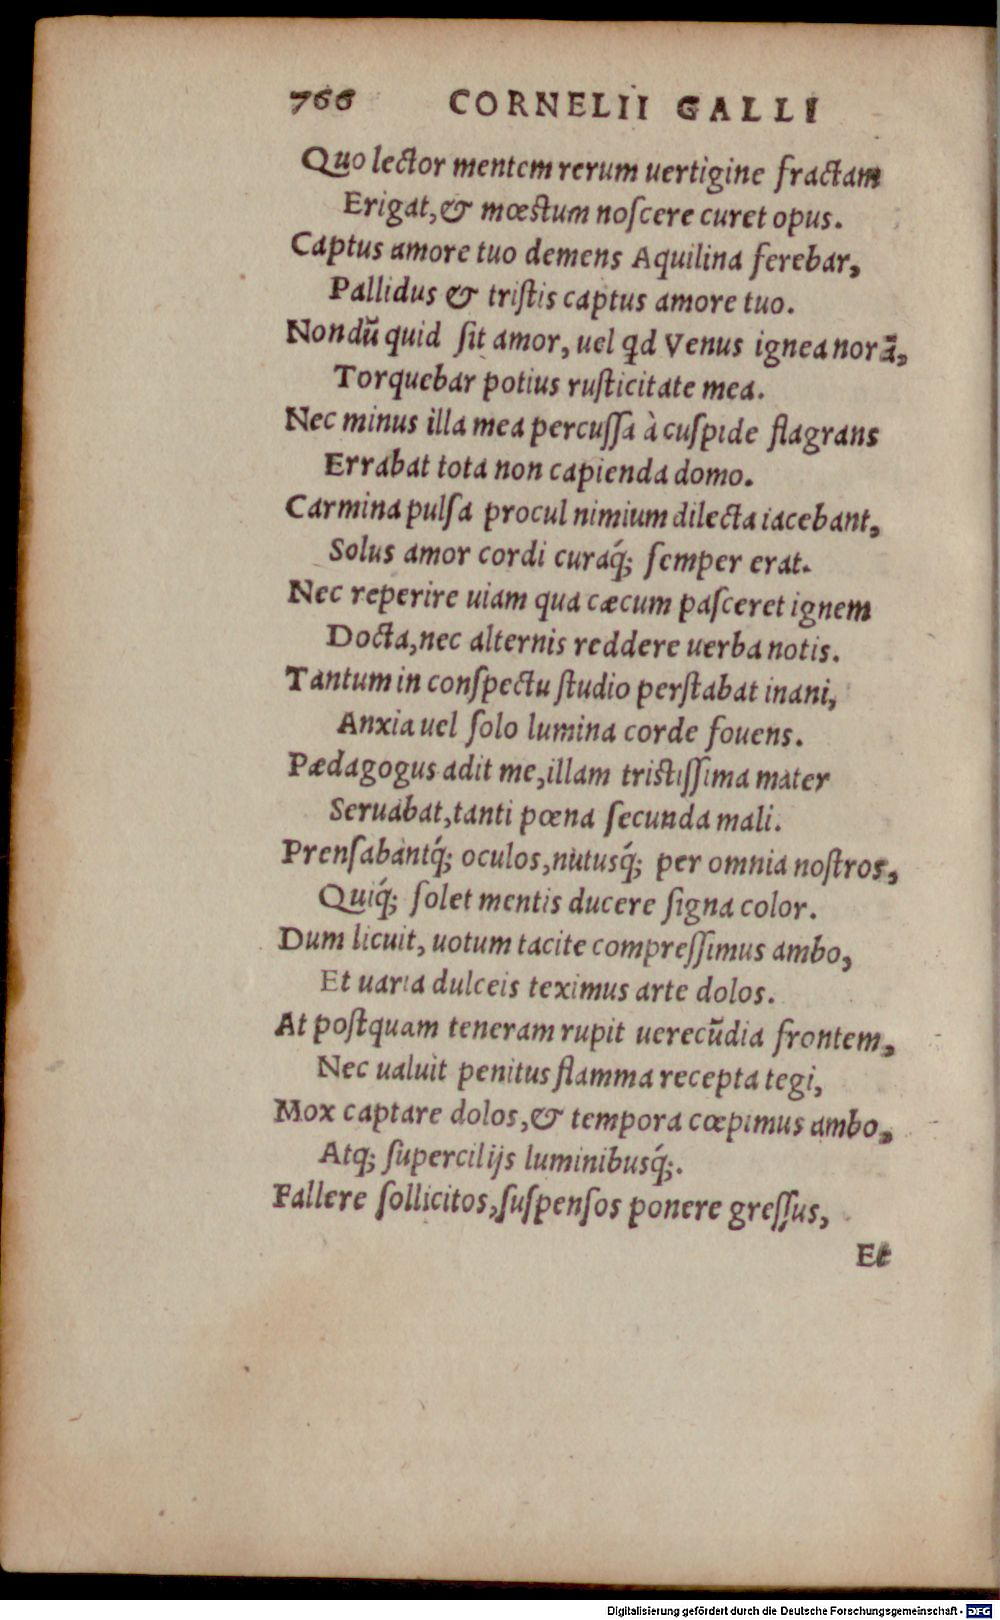 766 CORNELII GALLI
Quo lector mentem rerum uertigine fractam
Erigat, & mœstum noſcere curet opus.
Captus amore tuo demens Aquilina ferebar,
Pallidus & triſtis captus amore tuo.
Nondũ quid ſit amor, uel qd Venus ignea norã,
Torquebar potius ruſticitate mea.
Nec minus illa mea percuſſa à cuſpide flagrans
Errabat tota non capienda domo.
Carmina pulſa procul nimium dilecta iacebant,
Solus amor cordi curaq́; ſemper erat.
Nec reperire uiam qua cæcum paſceret ignem
Docta, nec alternis reddere uerba notis.
Tantum in conſpectu ſtudio perſtabat inani,
Anxia uel ſolo lumina corde fouens.
Pædagogus adit me, illam tristiſſima mater
Seruabat, tanti pœna ſecunda mali.
Prenſabantq́; oculos, nutusq́; per omnia noſtros,
Quiq́; ſolet mentis ducere ſigna color.
Dum licuit, uotum tacite compreſſimus ambo,
Et uaria dulceis teximus arte dolos.
At poſtquam teneram rupit uerecũdia frontem,
Nec ualuit penitus flamma recepta tegi,
Mox captare dolos, & tempora cœpimus ambo,
Atq; ſupercilijs luminibusq́;.
Fallere ſollicitos, ſuſpenſos ponere greſſus,
Et
Digitalisierung gefördert durch die Deutsche Forschungsgemeinschaft - DFG